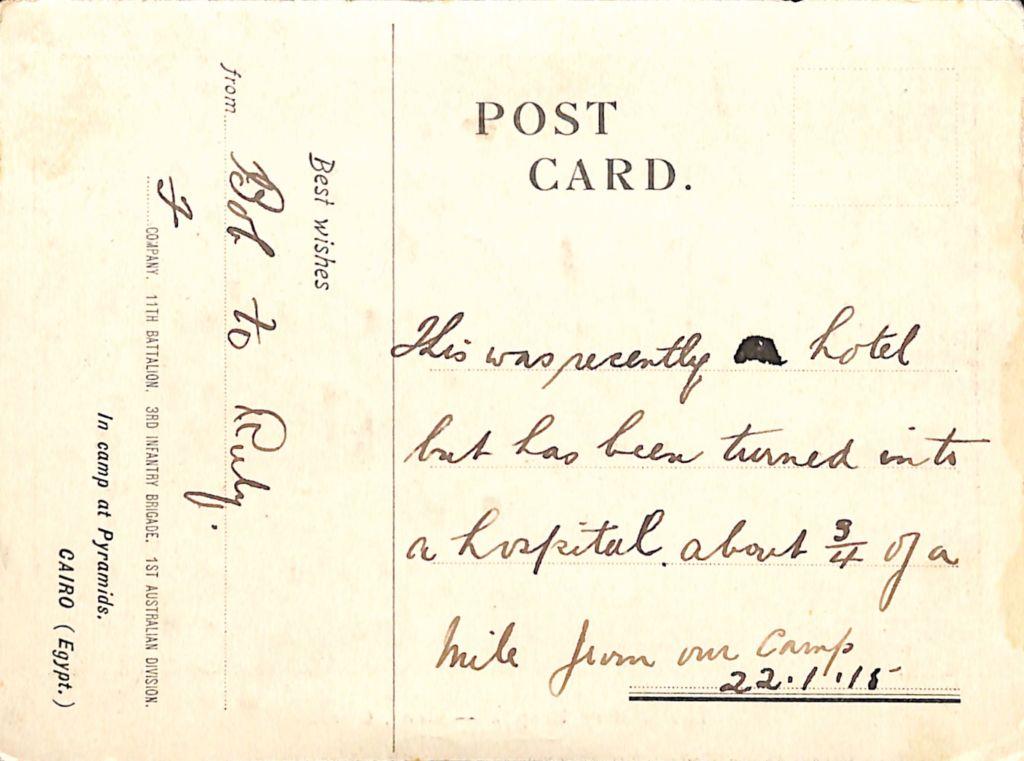 Best wishes
from Bob to Ruby.
F COMPANY. 11TH BATTALION. 3RD INFANTRY BRIGADE, 1ST AUSTRALIAN DIVISION.
In camp at Pyramids.
CAIRO (Egypt.)
POST
CARD.
This was recently hotel
but has been turned into
a hospital. about 3/4 of a
mile from our Camp
22.1.15